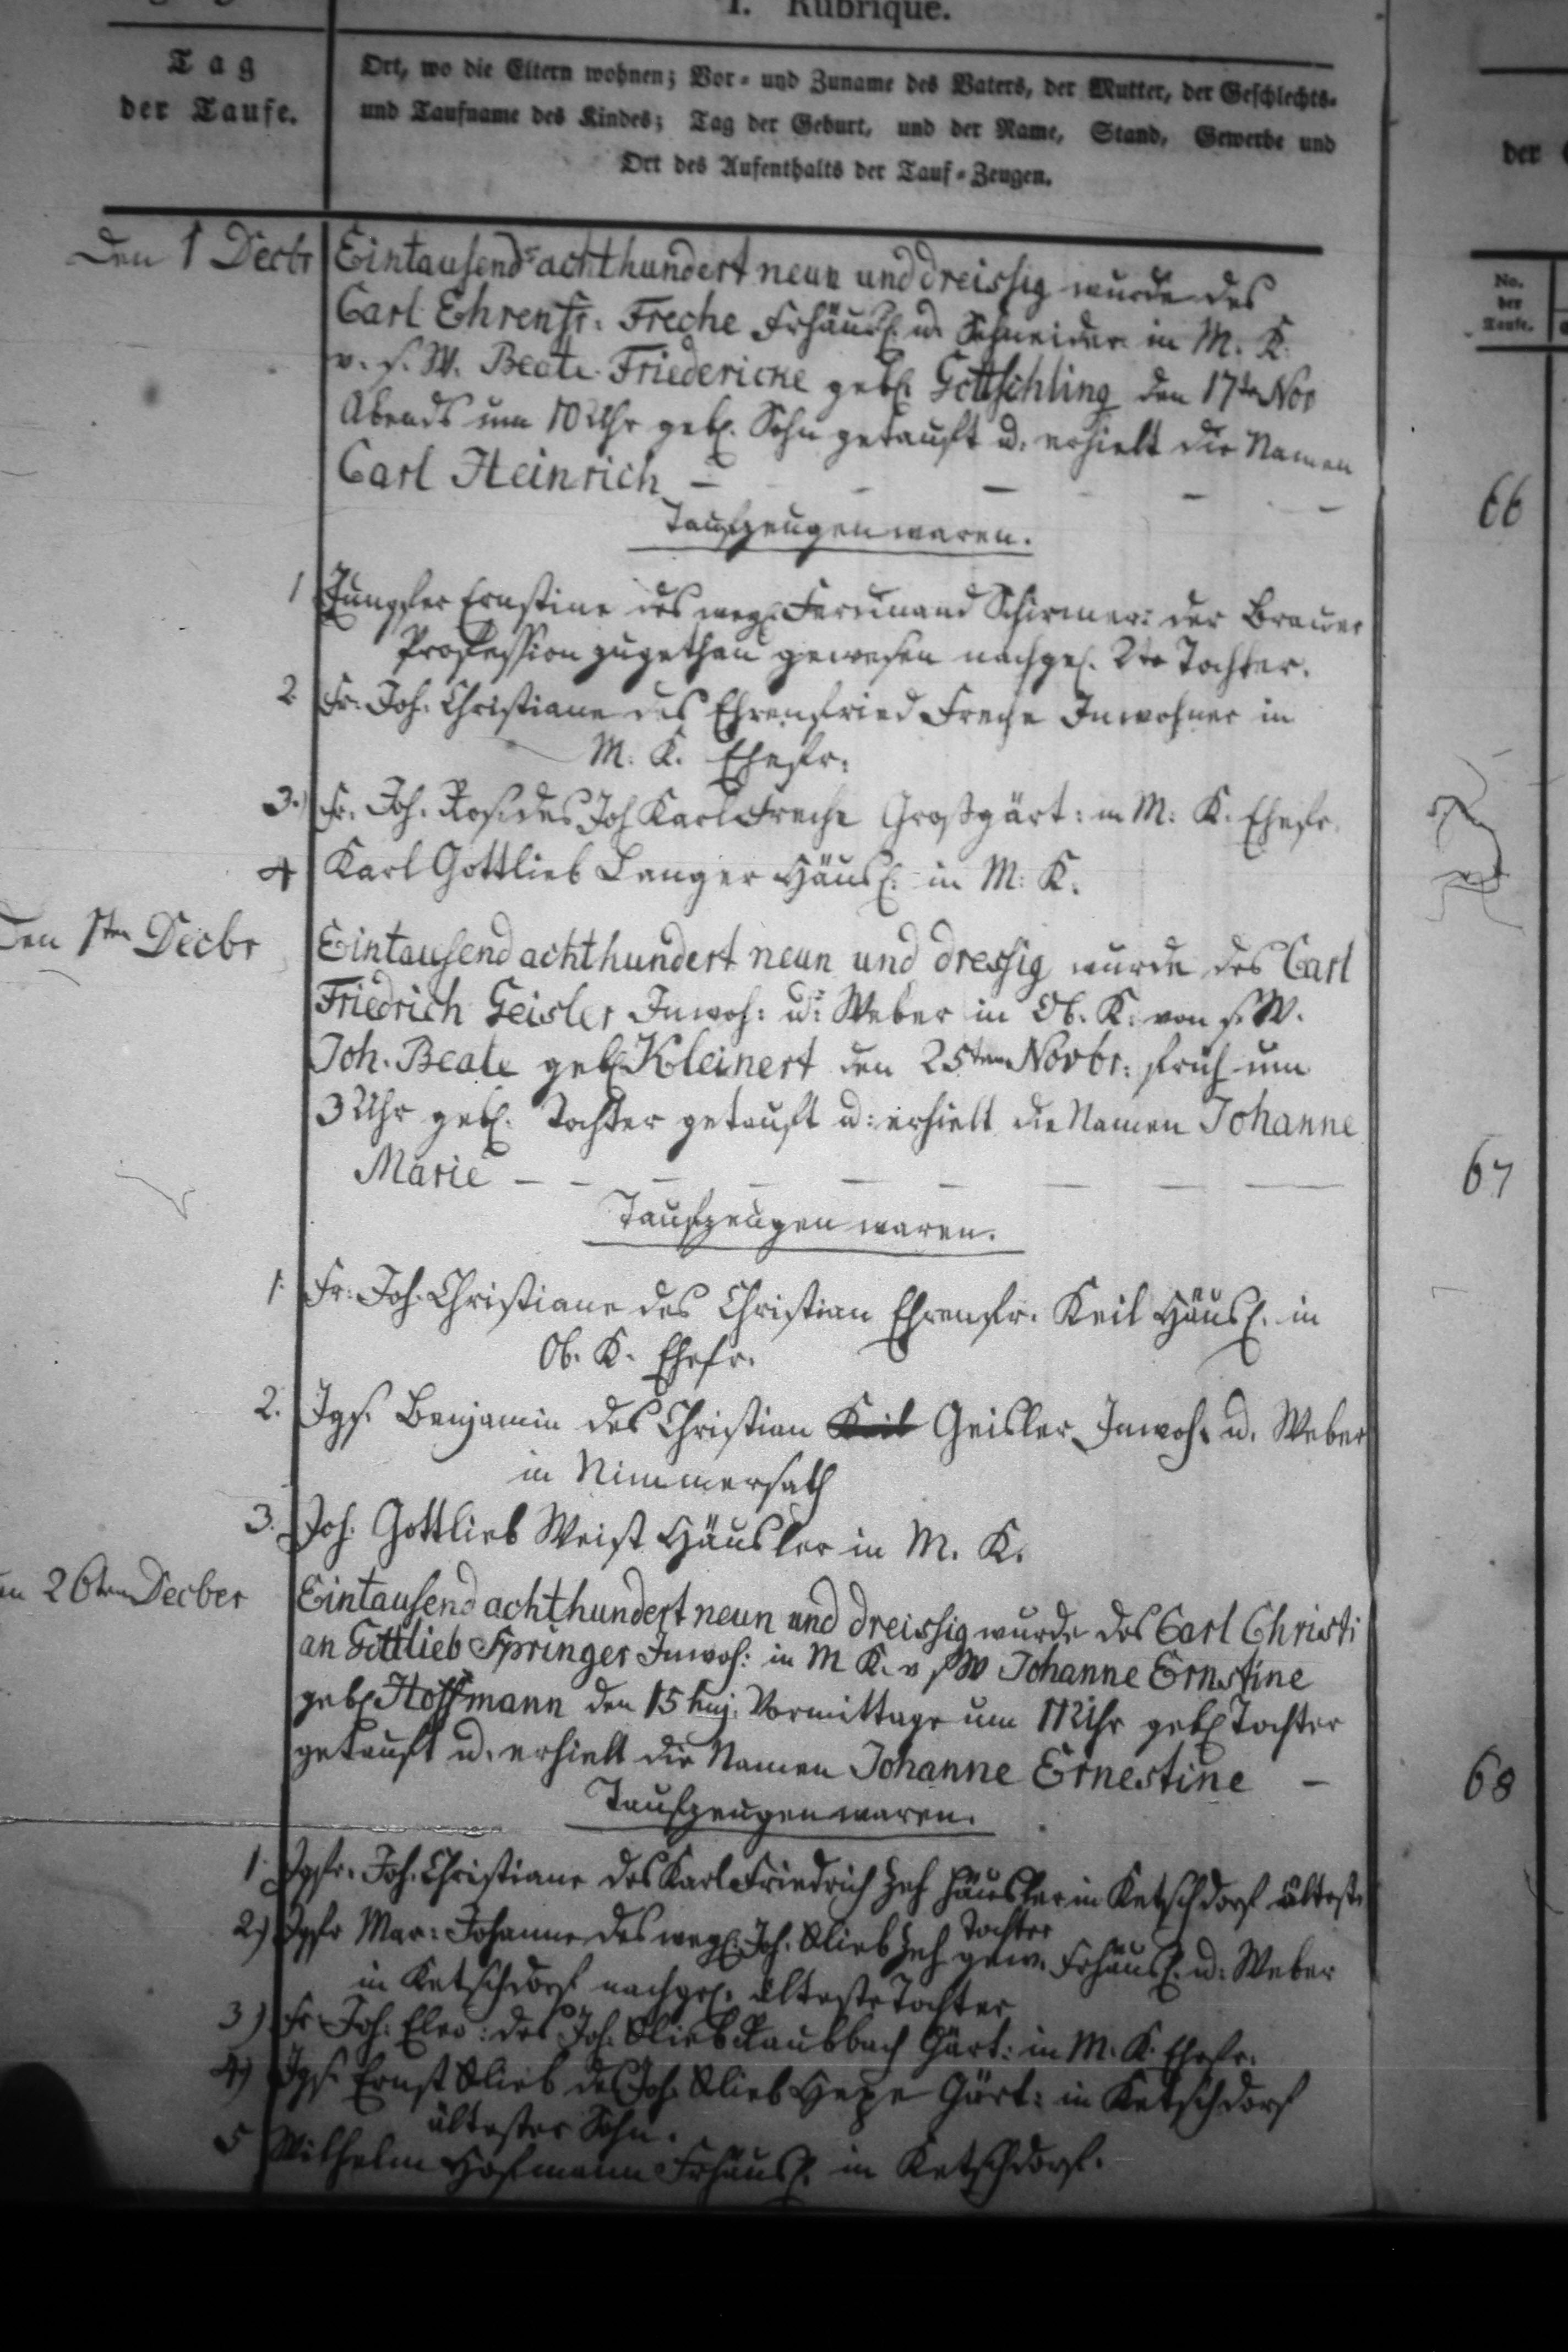 I. Rubrique.
Tag
der Taufe.
Ort, wo die Eltern wohnen; Vor- und Zuname des Vaters, der Mutter, der Geschlechts-
und Taufname des Kindes; Tag der Geburt, und der Name, Stand, Gewerbe und
Ort des Aufenthalts der Tauf-Zeugen.
der
No.
der
Taufe.
Den 1 Decbr
Eintausend achthundert neun und dreissig wurde des
Carl Ehrenfr: Freche Frhäusl. u. Schneider in M. K.
v. s. W. Beate Friedericke geb. Gottschling den 17ten Nov
Abends um 10 Uhr geb. Sohn getauft u. erhielt die Namen
Carl Heinrich
66
Taufzeugen waren.
1 Jungfer Ernstine des weg. Ferdinand Schirmer: der Brauer
Profession zugethan gewesen nachgel. 2te Tochter.
2. Fr. Joh. Christiane des Ehrenfried Freche Inwohner in
M. K. Ehefr.
3.) Fr. Joh. Ros. des Joh Karl Freche Großgärt: in M: K. Ehefr.
4 Karl Gottlieb Langer Häusl. in M: K.
Den 1ten Decbr
Eintausend achthundert neun und dressig wurde des Carl
Friedrich Geisler Inwoh: u: Weber in Ob. K. von s. W.
Joh. Beate geb. Kleinert den 25ten Novbr: früh um
3 Uhr geb. Tochter getauft u: erhielt die Namen Johanne
Marie
67
Taufzeugen waren.
1. Fr. Joh. Christiane des Christian Ehrenfr. Keil Häusl. in
Ob. K. Ehefr.
2. Jgs. Benjamin des Christian Keil Geisler Inwoh. u. Weber
in Nimmersath
3. Joh. Gottlieb Weist Häusler in M. K.
26ten Decber
Eintausend achthundert neun und dreissig wurde des Carl Christi
an Gottlieb Springer Inwoh: in M K. v s W Johanne Ernstine
geb. Hoffmann den 15 huj. Vormittage um 11 Uhr geb. Tochter
getauft u. erhielt die Namen Johanne Ernestine
68
Taufzeugen waren.
1. Jgfr. Joh. Christiane des Karl Friedrich Zeh Häusler in Ketschdorf älteste
Tochter
2.) Jgfr Mar: Johanne des weg. Joh. Glieb Zeh gew. Frhäusl. u: Weber
in Ketschdorf nachgel. älteste Tochter
3) Fr Joh. Eleo: des Joh. Glieb Raubbach Gärt: in M. K. Ehefr.
4) Jgs. Ernst Glieb des Joh. Glieb Gärt: in Ketschdorf
ältester Sohn.
5 Wilhelm Hofmann Frhäusl. in Ketschdorf.